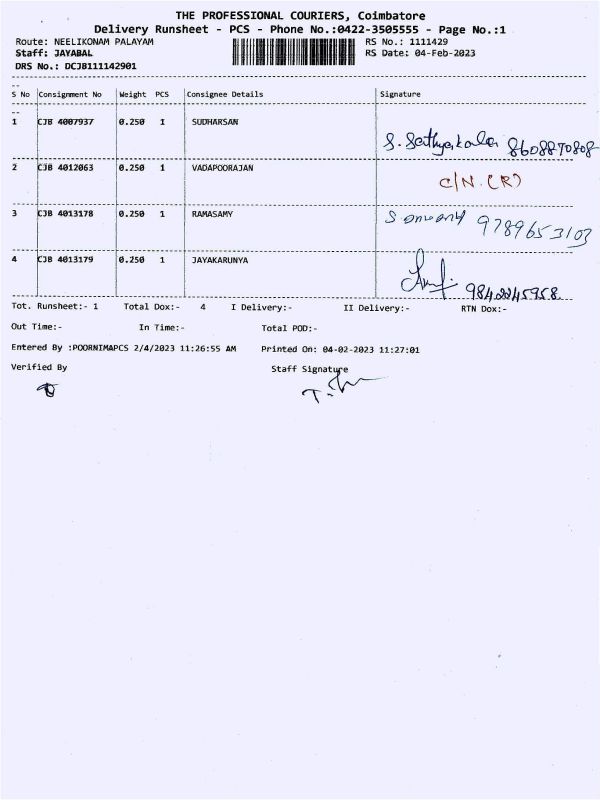 THE PROFESSIONAL COURIERS, Coimbatore
Delivery Runsheet - PCS - Phone No.:0422-3505555 - Page No.:1
Route: NEELIKONAM PALAYAM RS No.: 1111429
Staff: JAYABAL RS Date: 04-Feb-2023
DRS No.: DCJB111142901
S No Consignment No Weight PCS Consignee Details Signature
1 CJB 4007937 0.250 1 SUDHARSAN
S. Sathyakala 8608870808
2 CJB 4012063 0.250 1 VADAPOORAJAN
C/N. (R)
3 CJB 4013178 0.250 1 RAMASAMY
9789653103
4 CJB 4013179 0.250 1 JAYAKARUNYA
Tot. Runsheet:- 1 Total Dox:- 4 I Delivery:- II Delivery:- RTN Dox:-
Out Time:- In Time:- Total POD:-
Entered By :POORNIMAPCS 2/4/2023 11:26:55 AM Printed On: 04-02-2023 11:27:01
Verified By Staff Signature